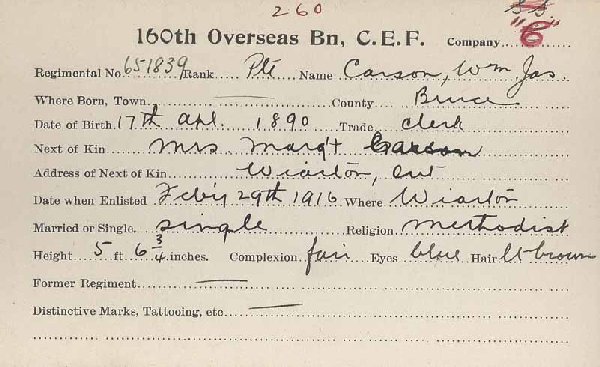 260
160th Overseas Bn, C.E.F. Company "C"
Regimental No. 651839 Rank Pte Name Carson, Wm Jas.
Where Born, Town — County Bruce
Date of Birth 17th Apl. 1890 Trade Clerk
Next of Kin Mrs Margt Carson
Address of Next of Kin Wiarton, Ont
Date when Enlisted Feby 29th 1916 Where Wiarton
Married or Single. single Religion. Methodist
Height 5 ft 6 3/4 inches. Complexion fair Eyes blue Hair lt brown
Former Regiment —
Distinctive Marks, Tattooing, etc —